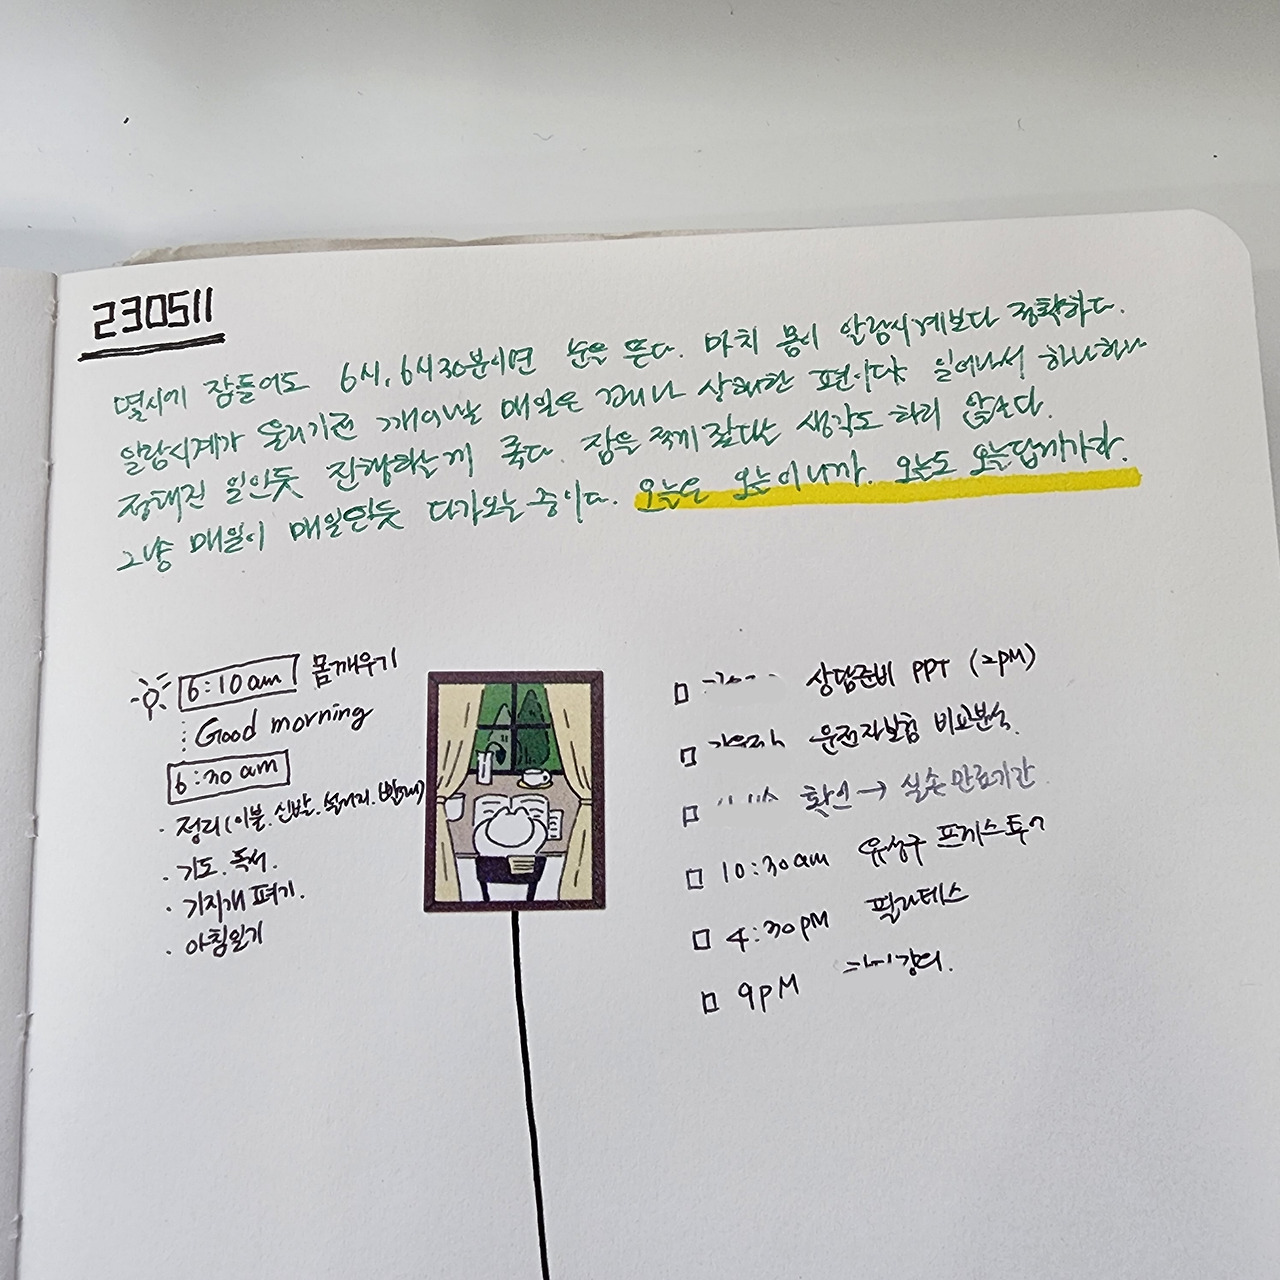 230511
몇시에 잠들어도 6시, 6시30분이면 눈을 뜬다. 마치 몸이 알람시계보다 정확하다.
알람시계가 울리기전 깨어날 매일은 꽤나 상쾌한 편이다. 일어나서 하나하나
정해진 일인듯 진행하는게 좋다. 잠을 적게잤다는 생각도 하지 않는다.
그냥 매일이 매일인듯 다가오는 중이다. 오늘은 오늘이니까. 오늘도 오늘답게가자.
6:10am 몸깨우기
Good morning
6:30am
· 정리(이불. 신발. 설거지. 빨래)
· 기도. 독서.
· 기지개 펴기.
· 아침일기
상담준비 PPT (2PM)
운전자보험 비교분석.
확인 → 실손 만료기간
10:30am 유성구
4:30PM 필라테스
9PM